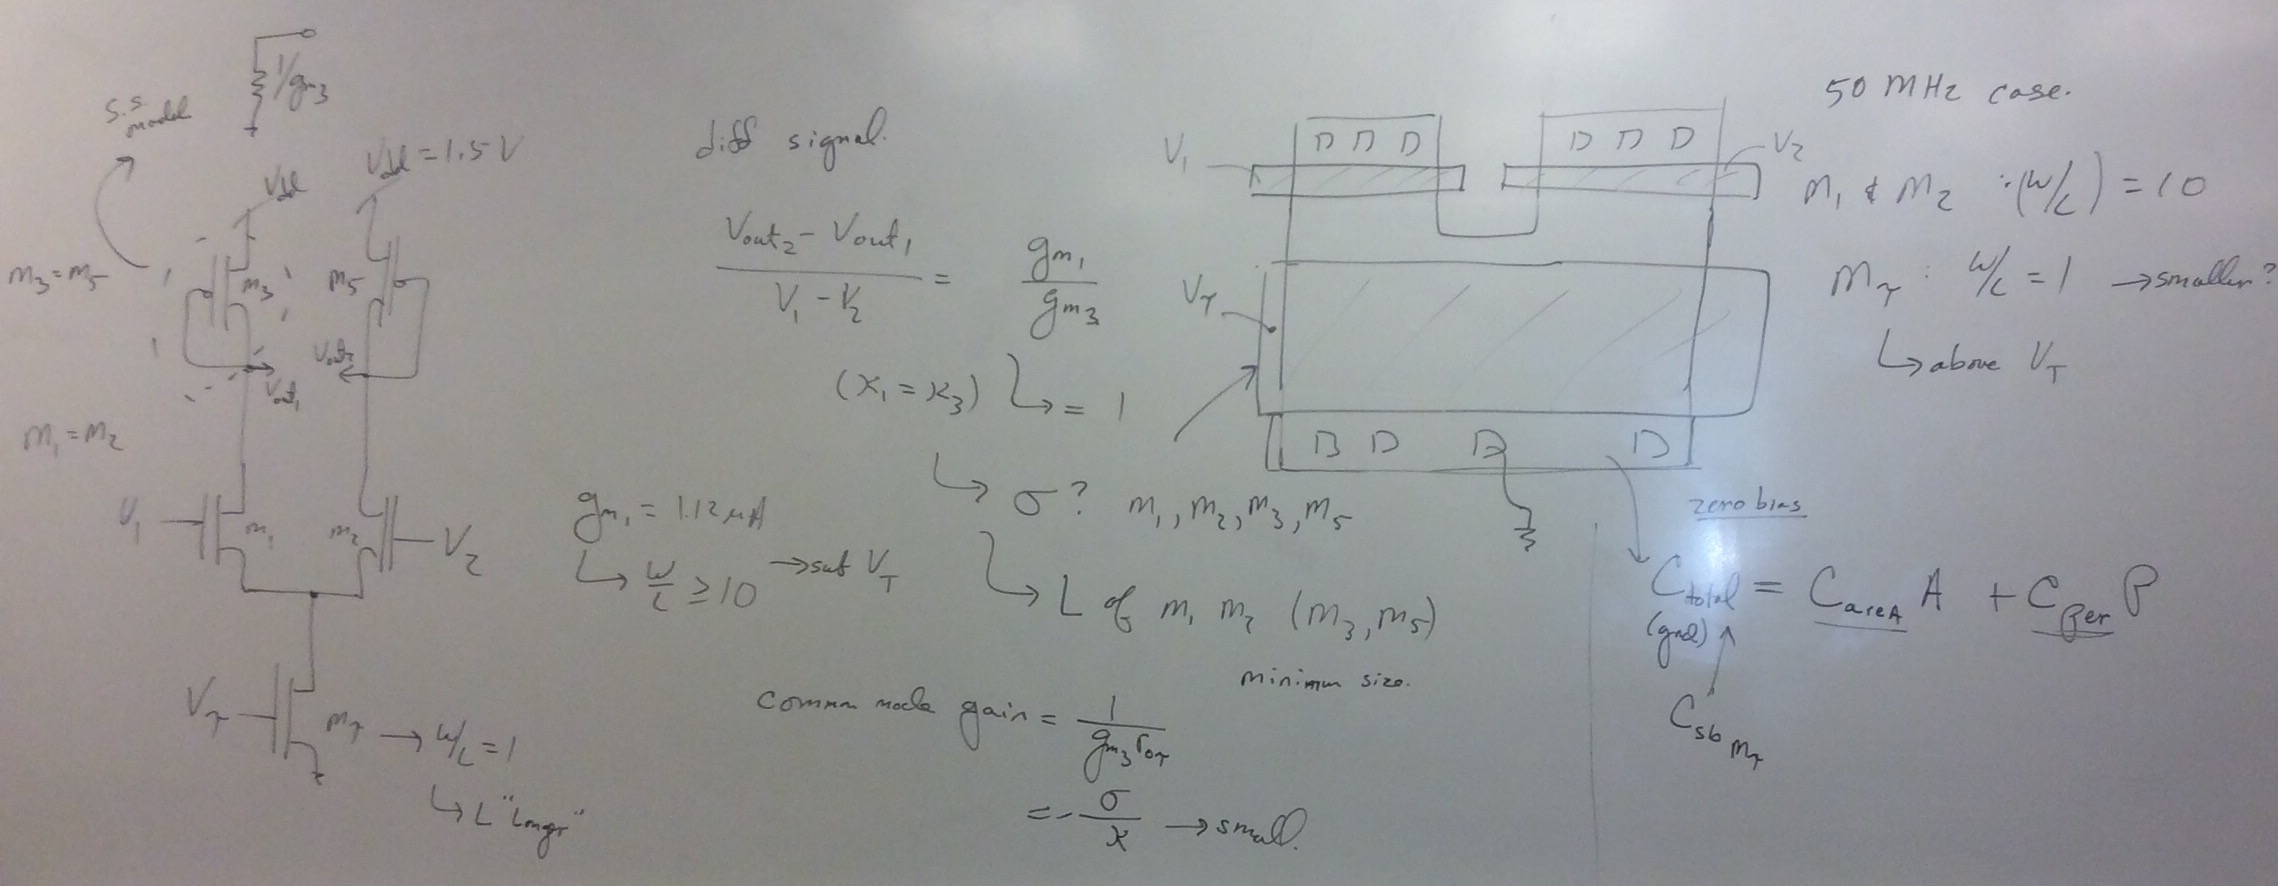 1/gm3
s.s. model
Vdd
Vdd = 1.5 V
M3 = M5
M3
M5
Vout1
Vout2
M1 = M2
V1
M1
M2
V2
Vτ
Mτ → W/L = 1
↳ L "Longer"
diff signal.
(Vout2 - Vout1) / (V1 - V2) = gm1 / gm3
(κ1 = κ3) ↳ = 1
↳ σ? M1, M2, M3, M5
gm1 = 1.12 μA
↳ W/L ≥ 10 → sub VT
↳ L of M1 M2 (M3, M5)
minimum size.
common mode gain = 1 / (gm3 roτ)
= - σ/κ → small.
V1
V2
Vτ
50 MHz case.
M1 & M2 : (W/L) = 10
Mτ : W/L = 1 → smaller?
↳ above VT
zero bias
Ctotal = Carea A + Cper P
(gnd)
Csb Mτ